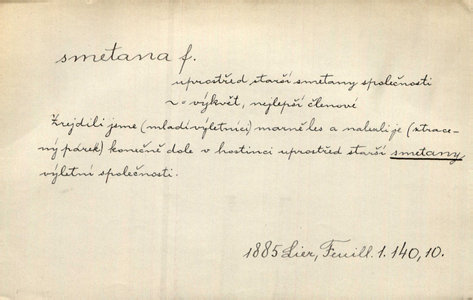 smetana f.
uprostřed starší smetany společnosti
~ = výkvět, nejlepší členové
Zrejdili jsme (mladí výletníci) marně les a nalezli je (strace-
ný párek) konečně dole v hostinci uprostřed starší smetany
výletní společnosti.
1885 Lier, Feuill. 1. 140, 10.